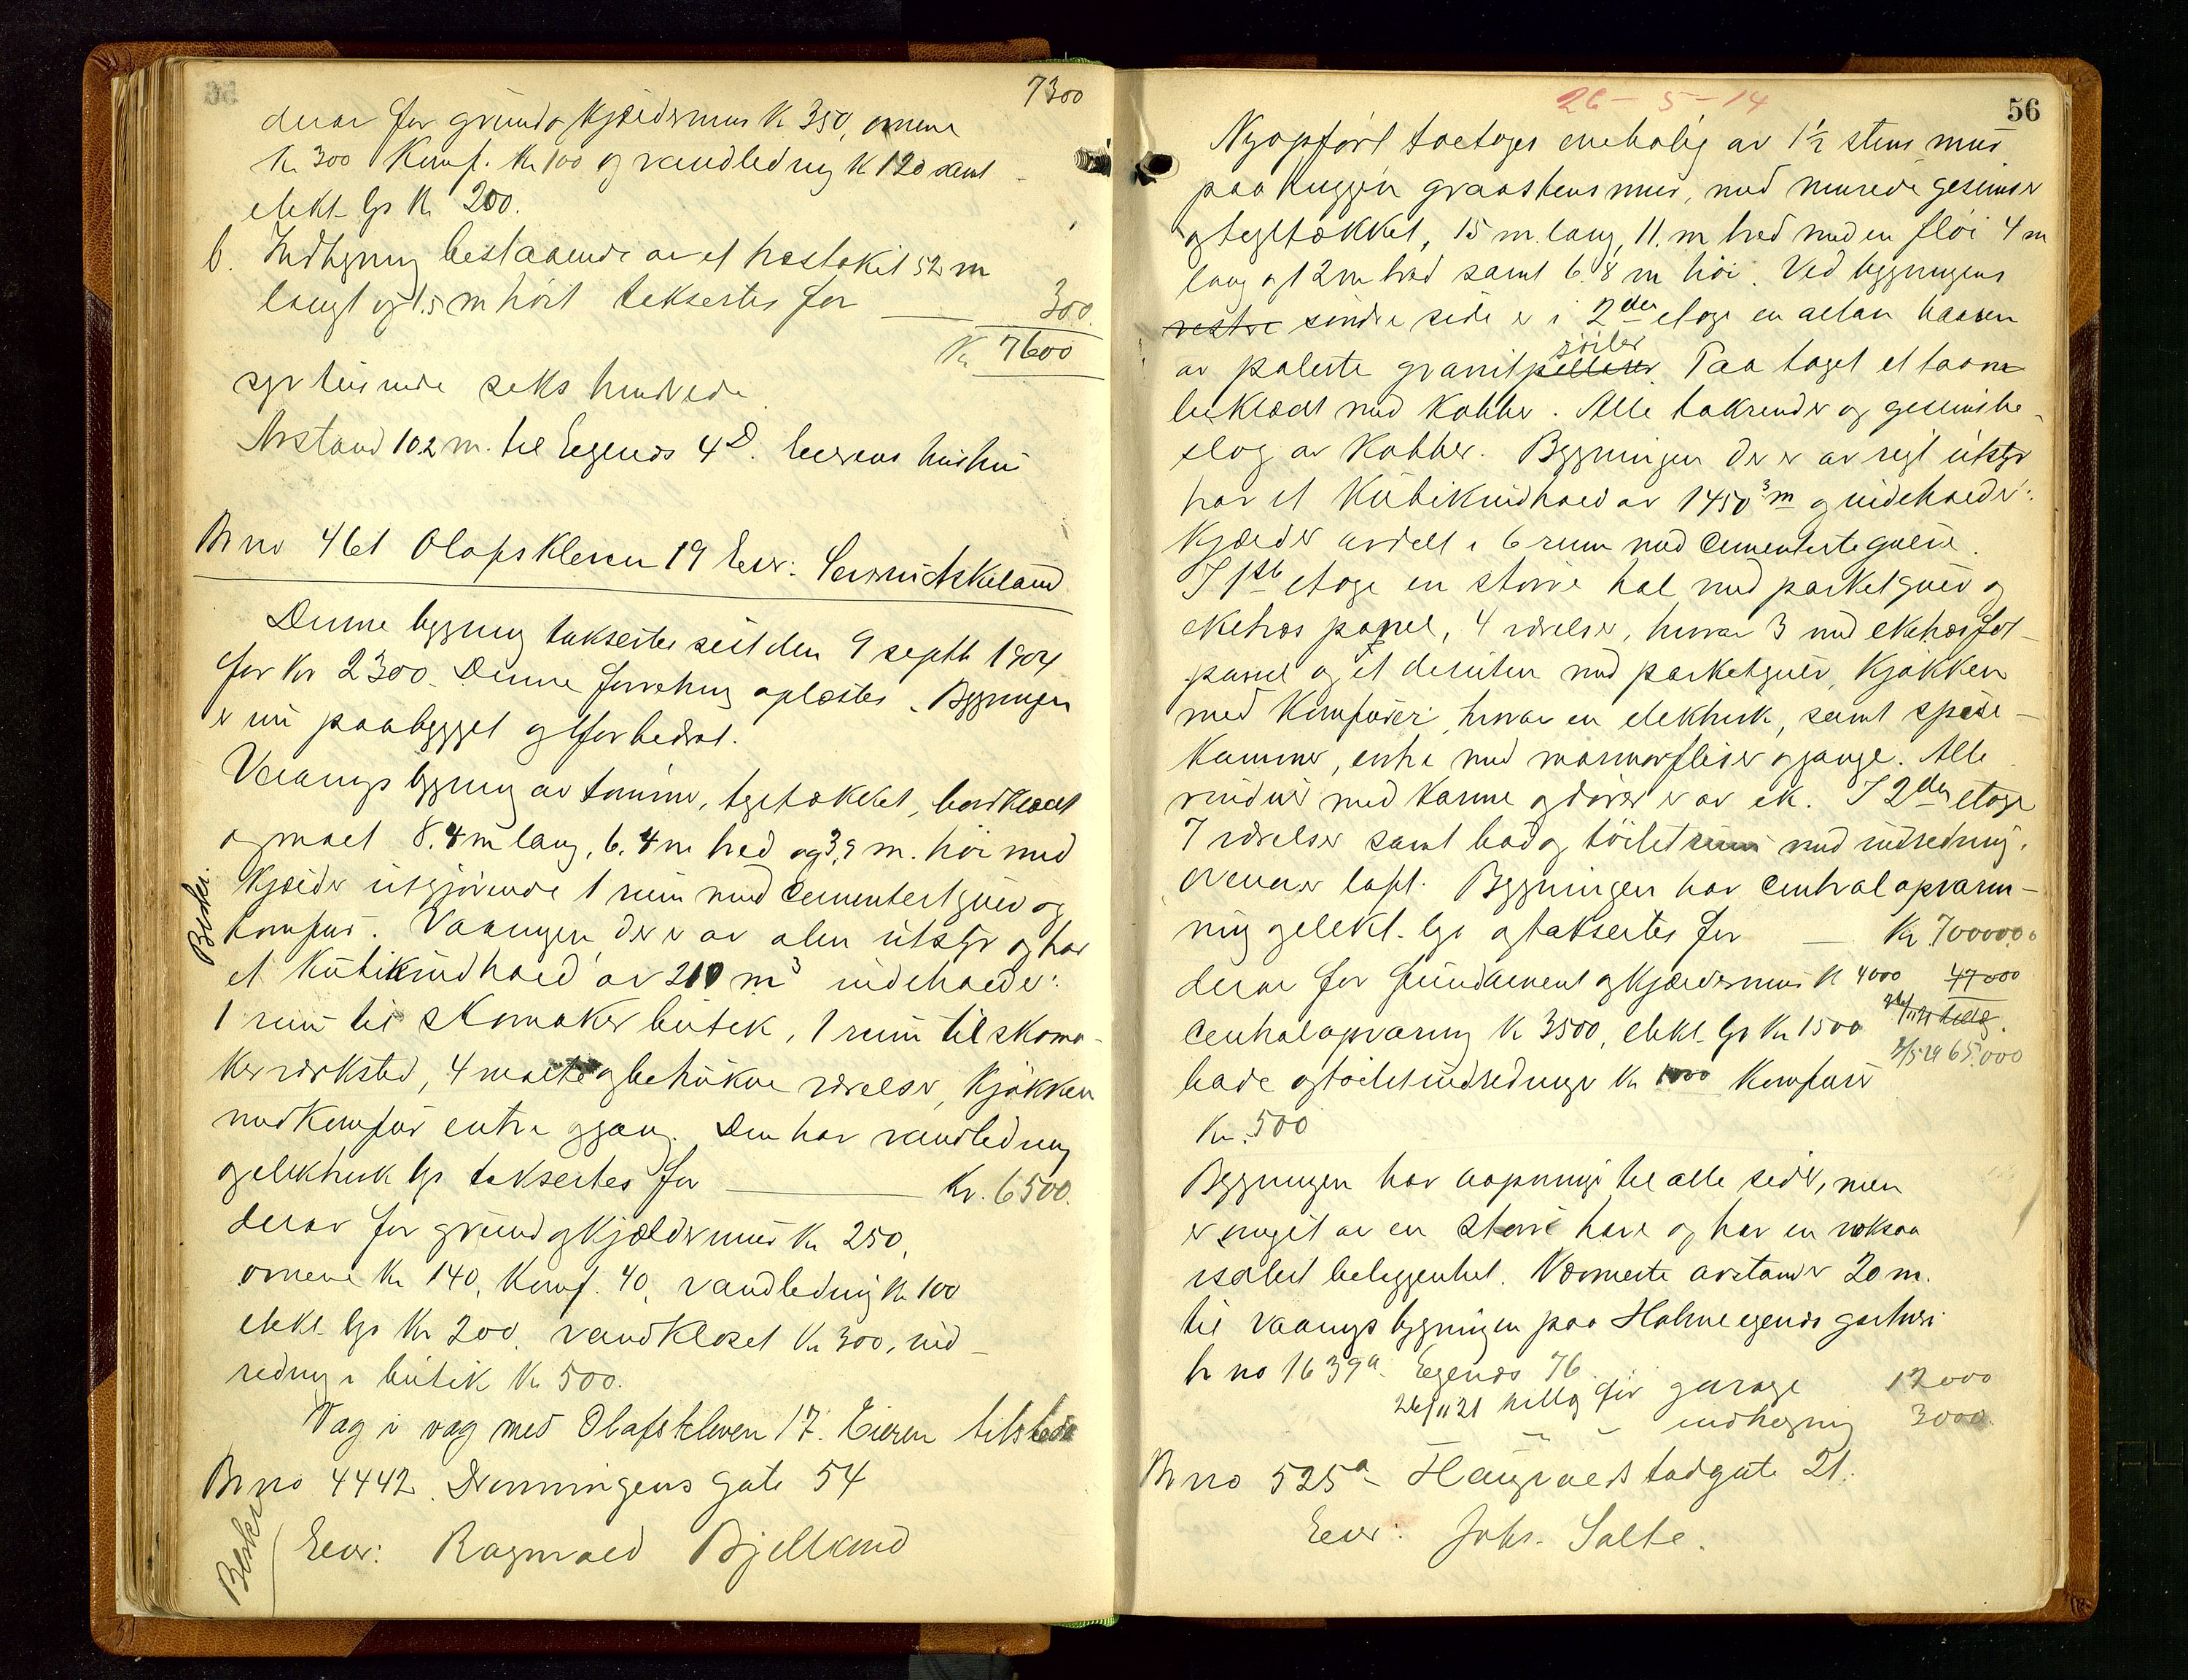 7300
derav for grund o kjældermur Kr 350, ovnene
Kr 300 Komf. Kr 100 og vandledning Kr 120 samt
elekt. lys Kr 200.
b. Indhegning bestaaende av et træstakit 52 m
langt og 1.5 m høit takseres for 300.
Kr 7600
syv tusinde seks hundrede
Avstand 102 m. til Eegenes 4D. Eierens hustru
Br no 461 Olafskleven 19 Eier: Skeland
Denne bygning takseres sidst den 9 septb 1904
for Kr 2300. Denne forretning oplæstes. Bygningen
er nu paabygget og forbedret.
Vaanings bygning av tømmer, tegltækket, bordklædt
og malt 8.4 m lang, 6.4 m bred og 3,9 m. høi med
Kjælder utgjørende 1 rum med cementert gulv og
Beskr.
komfur. Vaaningen der er av alm utstyr og har
et Kubikindhold av 210 m3 indeholder:
1 rum til skomaker butik, 1 rum til skoma-
ker værksted, 4 malte og betrukne værelser, Kjøkken
med Komfur entre og gang. Den har vandledning
og elektrisk lys takseres for Kr. 6500.
derav for grund og Kjældermur Kr 250,
ovnene Kr 140, Komf. 40, vandledning Kr 100
elekt. lys Kr 200. vandkloset Kr 300, ind-
redning i butik Kr 500.
Væg i væg med Olafskleven 17. Eieren tilstede
Br no 4442. Dronningens gate 54
Beskr.
Eier: Ragnvald Bjelland
26-5-14
56
Nyopført toetages enebolig av 1½ stens mur
paa huggen graastens mur, med murede gesimser
og tegltækket, 15 m. lang, 11. m bred med en fløi 4 m
lang og 12 m bred samt 6.8 m høi. Ved bygningens
vestre søndre side er i 2den etage en altan baaren
søiler
av polerte granitpillarer. Paa taget et taarn
beklædt med Kobber. Alle takrender og gesimsbe-
slag av Kobber. Bygningen der er av rigt utstyr
har et Kubikindhold av 1450 3m og indeholder:
Kjælder avdelt i 6 rum med cementerte gulve.
I 1ste etage en større hal med parketgulv og
eketræs panel, 4 værelser, hvorav 3 med eketræs fot-
panel og et desuten med parketgulv, Kjøkken
med Komfurer, hvorav en elektrisk, samt spise-
kammer, entre med marmorfliser og gange. Alle
vinduer med karme og dører er av ek. I 2den etage
7 værelser samt bad og toiletrum med indredning.
Ovenover loft. Bygningen har centralopvarm-
ning og elekt. lys og takseres for Kr. 70000.0
derav for fundament og Kjældermur Kr 4000 47000
Centralopvarmng Kr 3500, elekt. lys Kr 1500
65.000
bade og toiletindredninger Kr 1000 Komfurer
Kr. 500
Bygningen har aapninger til alle sider, men
er omgit av en større have og har en voksaa
isolert beliggenhet. Nærmeste avstand er 20 m.
til vaanings bygningen paa Holmeegenes gartneri
br no 1639a. Eegenes 76
26/11 21 tillæg for garage 12000
" " indhegning 3000.
Br no 525a Haugvaldstadgate 21.
Eier: Johs. Salte.